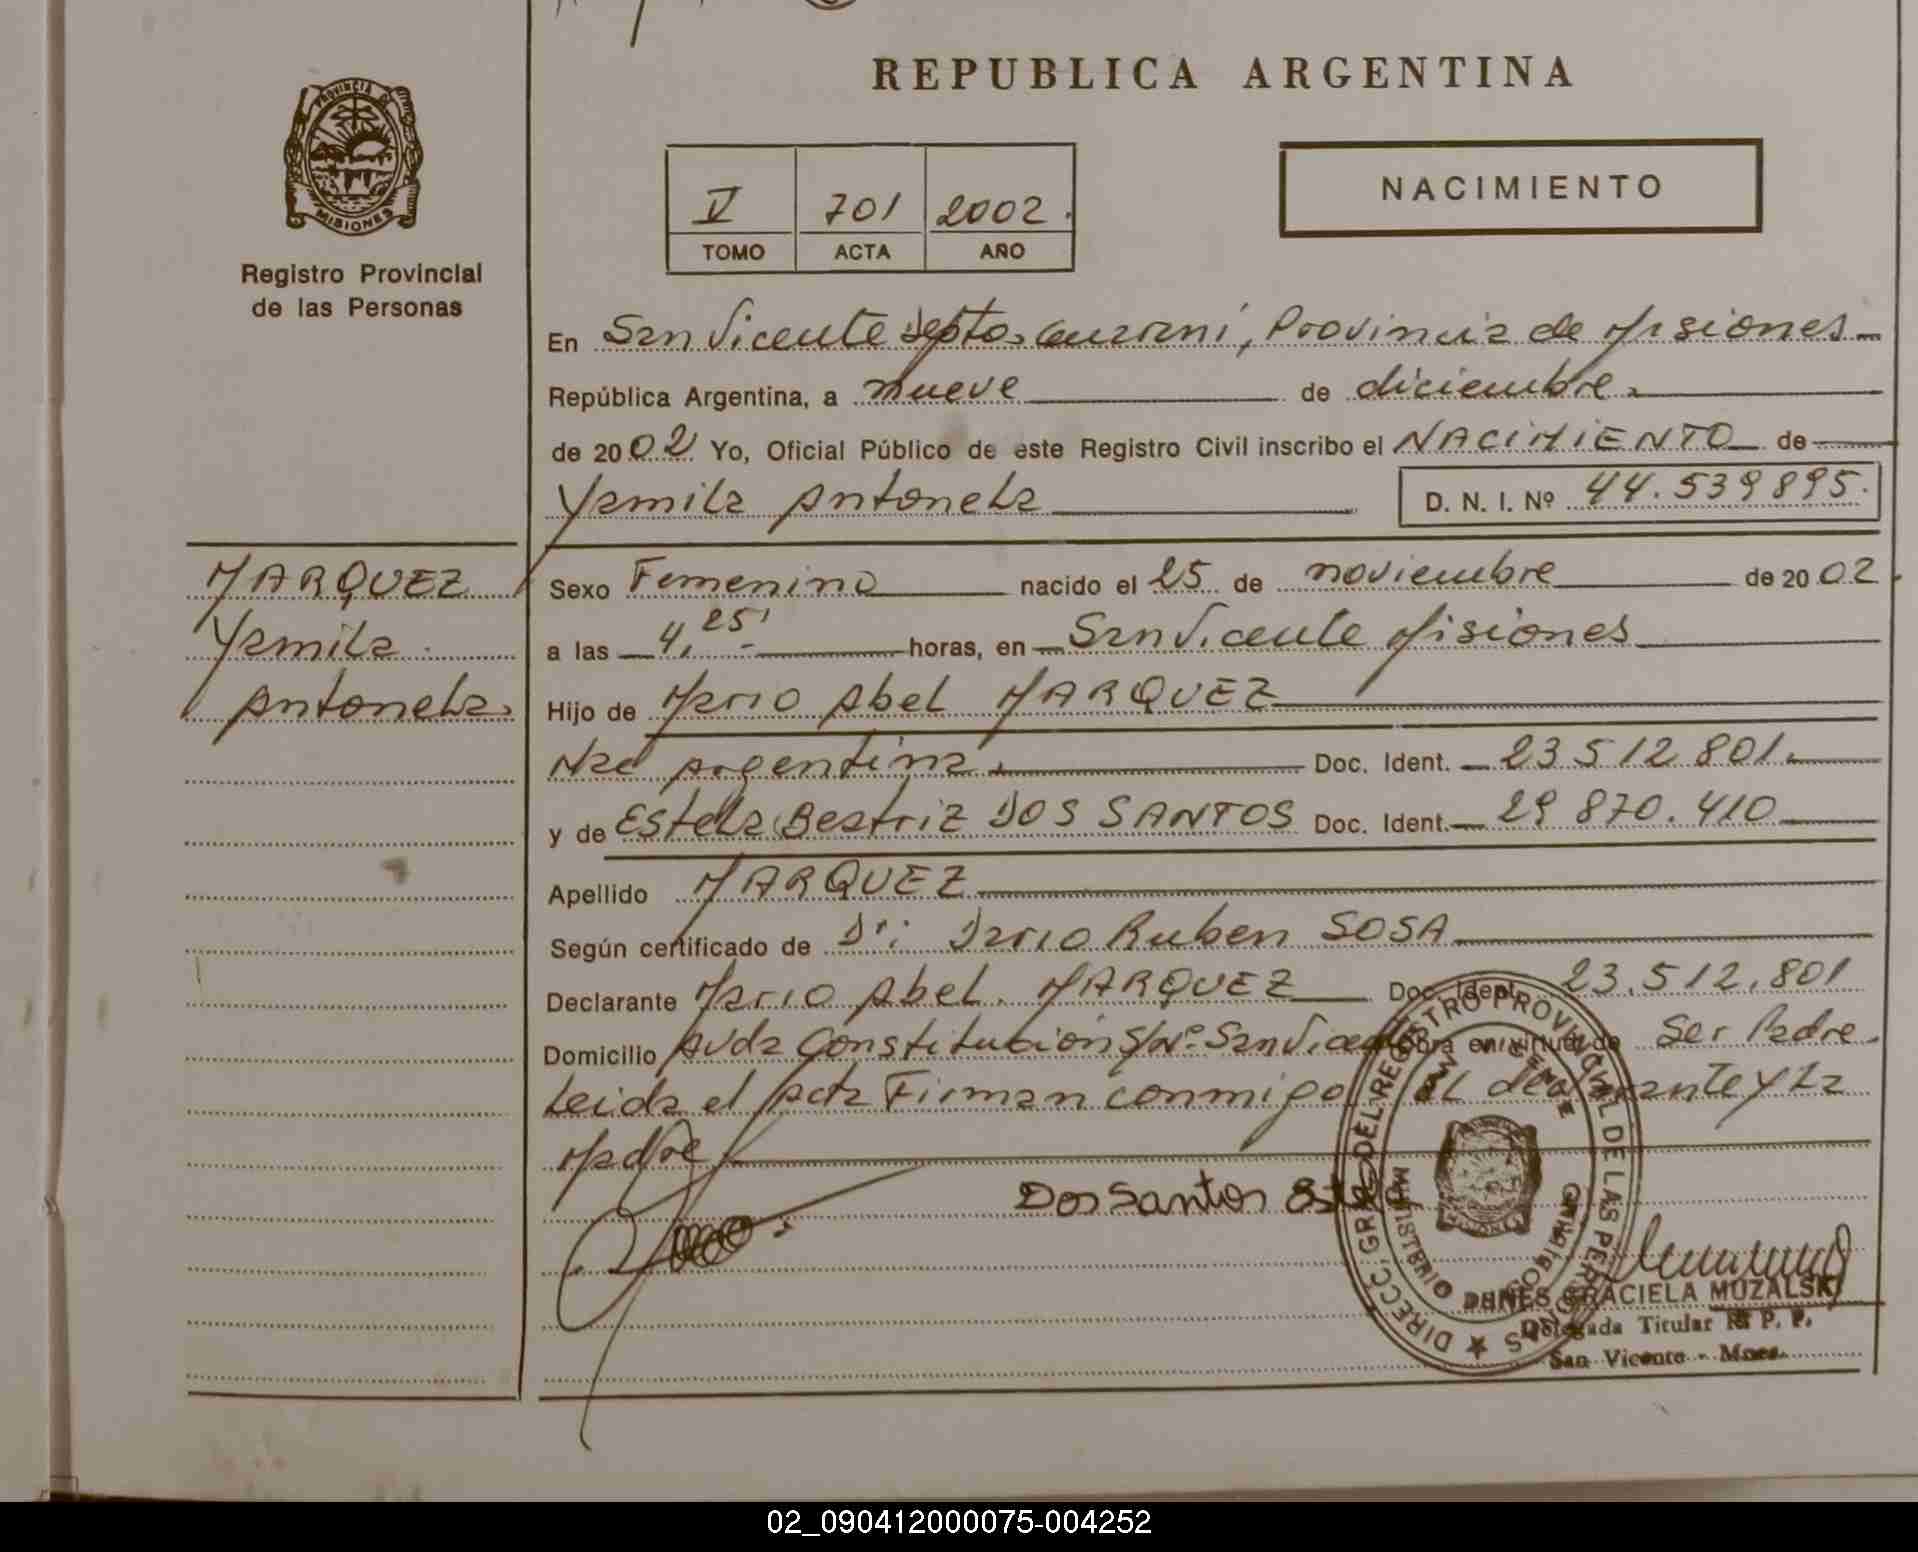 REPUBLICA ARGENTINA
PROVINCIA DE
MISIONES
Registro Provincial
de las Personas
V 701 2002.
TOMO ACTA AÑO
NACIMIENTO
En San Vicente Depto. Guaraní, Provincia de Misiones
República Argentina, a nueve de diciembre
de 2002 Yo, Oficial Público de este Registro Civil inscribo el NACIMIENTO de
Yamila Antonela D. N. I. Nº 44.539895.
MARQUEZ
Yamila
Antonela
Sexo Femenino nacido el 25 de noviembre de 2002
a las 4,25' horas, en San Vicente Misiones
Hijo de Mario Abel MARQUEZ
Nac Argentina Doc. Ident. 23 512 801
y de Estela Beatriz DOS SANTOS Doc. Ident. 29 870.410
Apellido MARQUEZ
Según certificado de Dr: Dario Ruben SOSA
Declarante Mario Abel MARQUEZ Doc. Ident. 23.512.801
Domicilio Avda Constitución S/Nº San Vicente Obra en virtud de Ser Padre.
Leida el Acta Firman conmigo el declarante y la
Madre
Dos Santos Estela
DIRECC. GRAL. DEL REGISTRO PROVINCIAL DE LAS PERSONAS
SAN VICENTE
MINISTERIO DE GOBIERNO
GRACIELA MUZALSKI
Delegada Titular R. P. P.
San Vicente - Mnes.
02_090412000075-004252